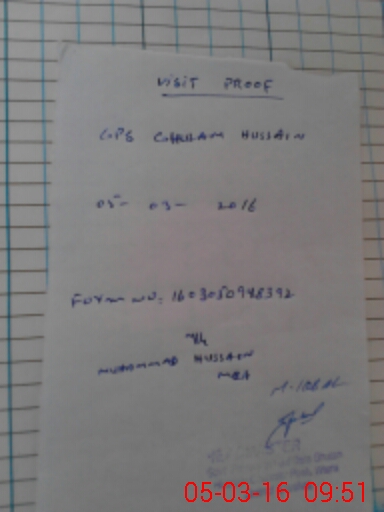 VISIT PROOF
GPS GHULAM HUSSAIN
05- 03- 2016
Form NO: 1603050948392
MUHAMMAD HUSSAIN
MEA
M-IQBAL
05-03-16 09:51